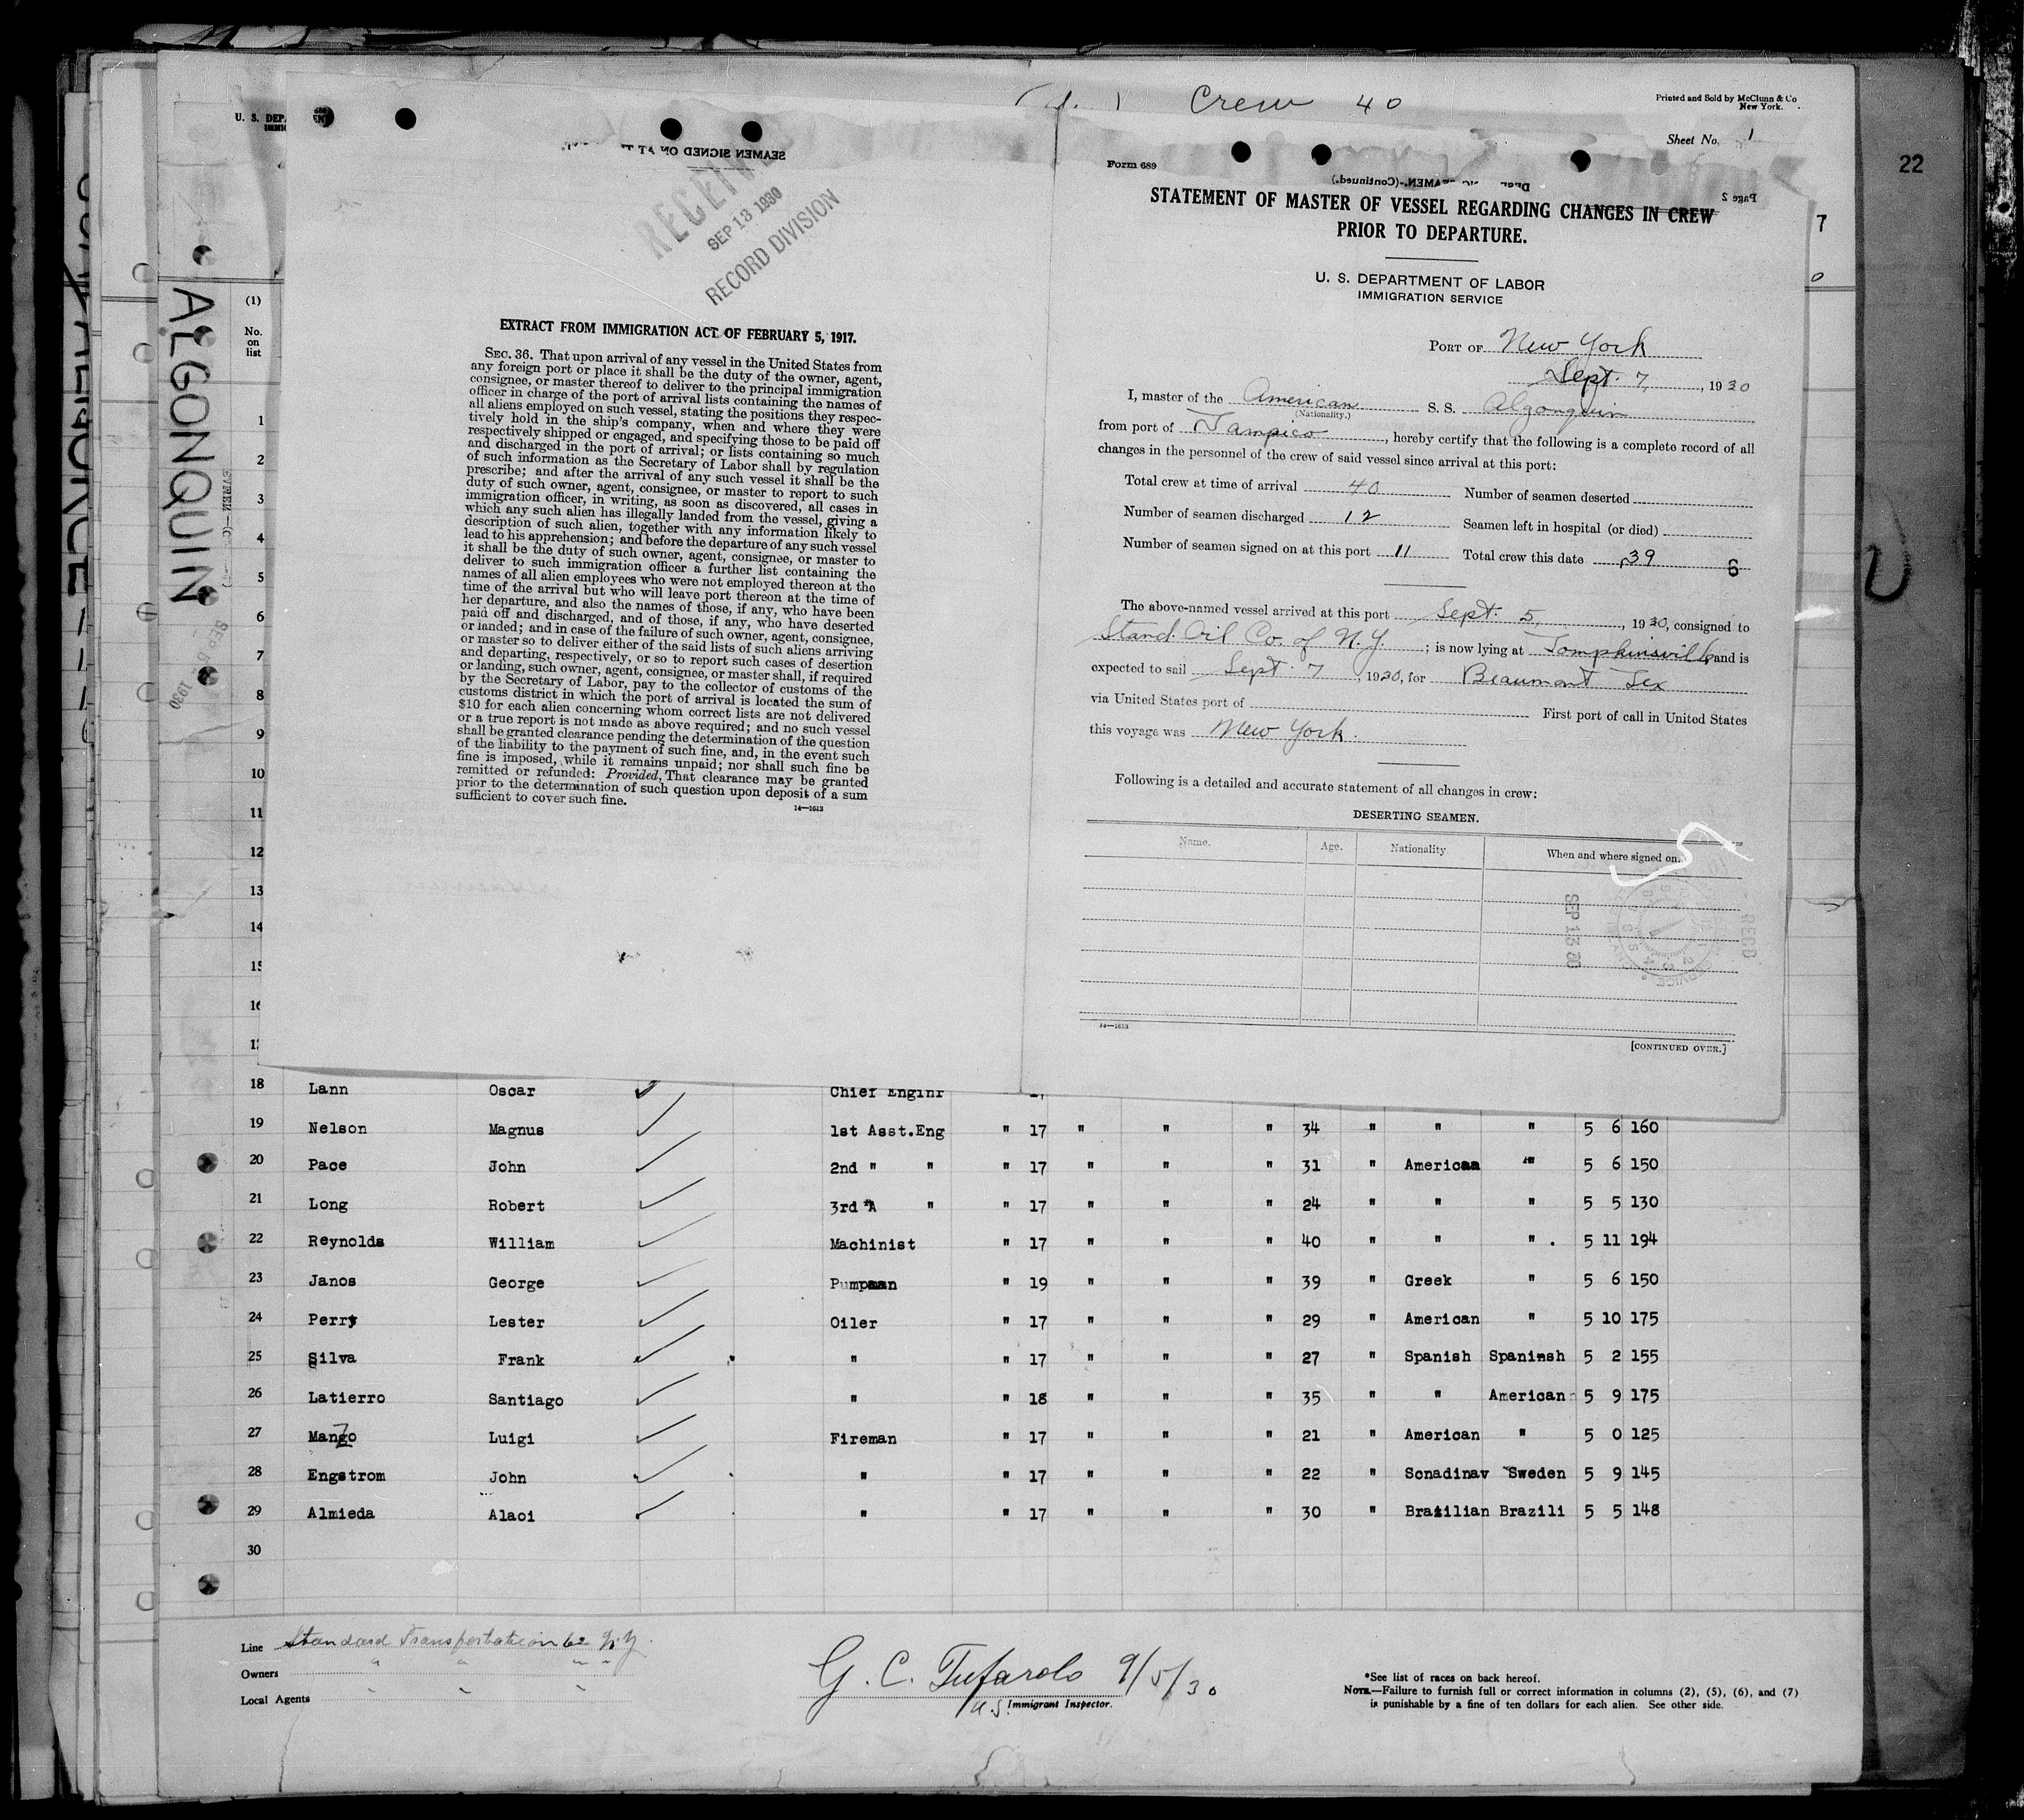 Crew 40
Printed and Sold by McClunn & Co
New York.
Sheet No. 1
22
U. S. DEP
SEAMEN SIGNED ON AT
RECEIVED
SEP 13 1930
RECORD DIVISION
EXTRACT FROM IMMIGRATION ACT OF FEBRUARY 5, 1917.
SEC. 36. That upon arrival of any vessel in the United States from
any foreign port or place it shall be the duty of the owner, agent,
consignee, or master thereof to deliver to the principal immigration
officer in charge of the port of arrival lists containing the names of
all aliens employed on such vessel, stating the positions they respec-
tively hold in the ship's company, when and where they were
respectively shipped or engaged, and specifying those to be paid off
and discharged in the port of arrival; or lists containing so much
of such information as the Secretary of Labor shall by regulation
prescribe; and after the arrival of any such vessel it shall be the
duty of such owner, agent, consignee, or master to report to such
immigration officer, in writing, as soon as discovered, all cases in
which any such alien has illegally landed from the vessel, giving a
description of such alien, together with any information likely to
lead to his apprehension; and before the departure of any such vessel
it shall be the duty of such owner, agent, consignee, or master to
deliver to such immigration officer a further list containing the
names of all alien employees who were not employed thereon at the
time of the arrival but who will leave port thereon at the time of
her departure, and also the names of those, if any, who have been
paid off and discharged, and of those, if any, who have deserted
or landed; and in case of the failure of such owner, agent, consignee,
or master so to deliver either of the said lists of such aliens arriving
and departing, respectively, or so to report such cases of desertion
or landing, such owner, agent, consignee, or master shall, if required
by the Secretary of Labor, pay to the collector of customs of the
customs district in which the port of arrival is located the sum of
$10 for each alien concerning whom correct lists are not delivered
or a true report is not made as above required; and no such vessel
shall be granted clearance pending the determination of the question
of the liability to the payment of such fine, and, in the event such
fine is imposed, while it remains unpaid; nor shall such fine be
remitted or refunded: Provided, That clearance may be granted
prior to the determination of such question upon deposit of a sum
sufficient to cover such fine.
14—1613
Form 689
SEAMEN.-(Continued.)
Page 2
STATEMENT OF MASTER OF VESSEL REGARDING CHANGES IN CREW
PRIOR TO DEPARTURE.
U. S. DEPARTMENT OF LABOR
IMMIGRATION SERVICE
PORT OF New York
Sept. 7, 1930
I, master of the American S. S. Algonquin
(Nationality.)
from port of Tampico, hereby certify that the following is a complete record of all
changes in the personnel of the crew of said vessel since arrival at this port:
Total crew at time of arrival 40 Number of seamen deserted
Number of seamen discharged 12 Seamen left in hospital (or died)
Number of seamen signed on at this port 11 Total crew this date 39
6
The above-named vessel arrived at this port Sept. 5, 1930, consigned to
Stand. Oil Co. of N.Y.; is now lying at Tompkinsville and is
expected to sail Sept 7, 1930, for Beaumont Tex
via United States port of First port of call in United States
this voyage was New York.
Following is a detailed and accurate statement of all changes in crew:
DESERTING SEAMEN.
Name. Age. Nationality When and where signed on.
SEP 13 30
14—1613
[CONTINUED OVER.]
ALGONQUIN
SEP 5 1930
(1)
No.
on
list
1
2
3
4
5
6
7
8
9
10
11
12
13
14
15
16
18 Lann Oscar Chief Enginr
19 Nelson Magnus 1st Asst.Eng " 17 " " " 34 " " " 5 6 160
20 Pace John 2nd " " " 17 " " " 31 " American " 5 6 150
21 Long Robert 3rd A " " 17 " " " 24 " " " 5 5 130
22 Reynolds William Machinist " 17 " " " 40 " " " . 5 11 194
23 Janos George Pumpman " 19 " " " 39 " Greek " 5 6 150
24 Perry Lester Oiler " 17 " " " 29 " American " 5 10 175
25 Silva Frank " " 17 " " " 27 " Spanish Spaninsh 5 2 155
26 Latierro Santiago " " 18 " " " 35 " " American 5 9 175
27 Mango Luigi Fireman " 17 " " " 21 " American " 5 0 125
28 Engstrom John " " 17 " " " 22 " Scnadinav Sweden 5 9 145
29 Almieda Alaoi " " 17 " " " 30 " Brazilian Brazili 5 5 148
30
Line Standard Transportation Co N.Y.
Owners " " " "
Local Agents " " " "
G. C. Tufarolo 9/5/30
U.S. Immigrant Inspector.
*See list of races on back hereof.
NOTE.—Failure to furnish full or correct information in columns (2), (5), (6), and (7)
is punishable by a fine of ten dollars for each alien. See other side.